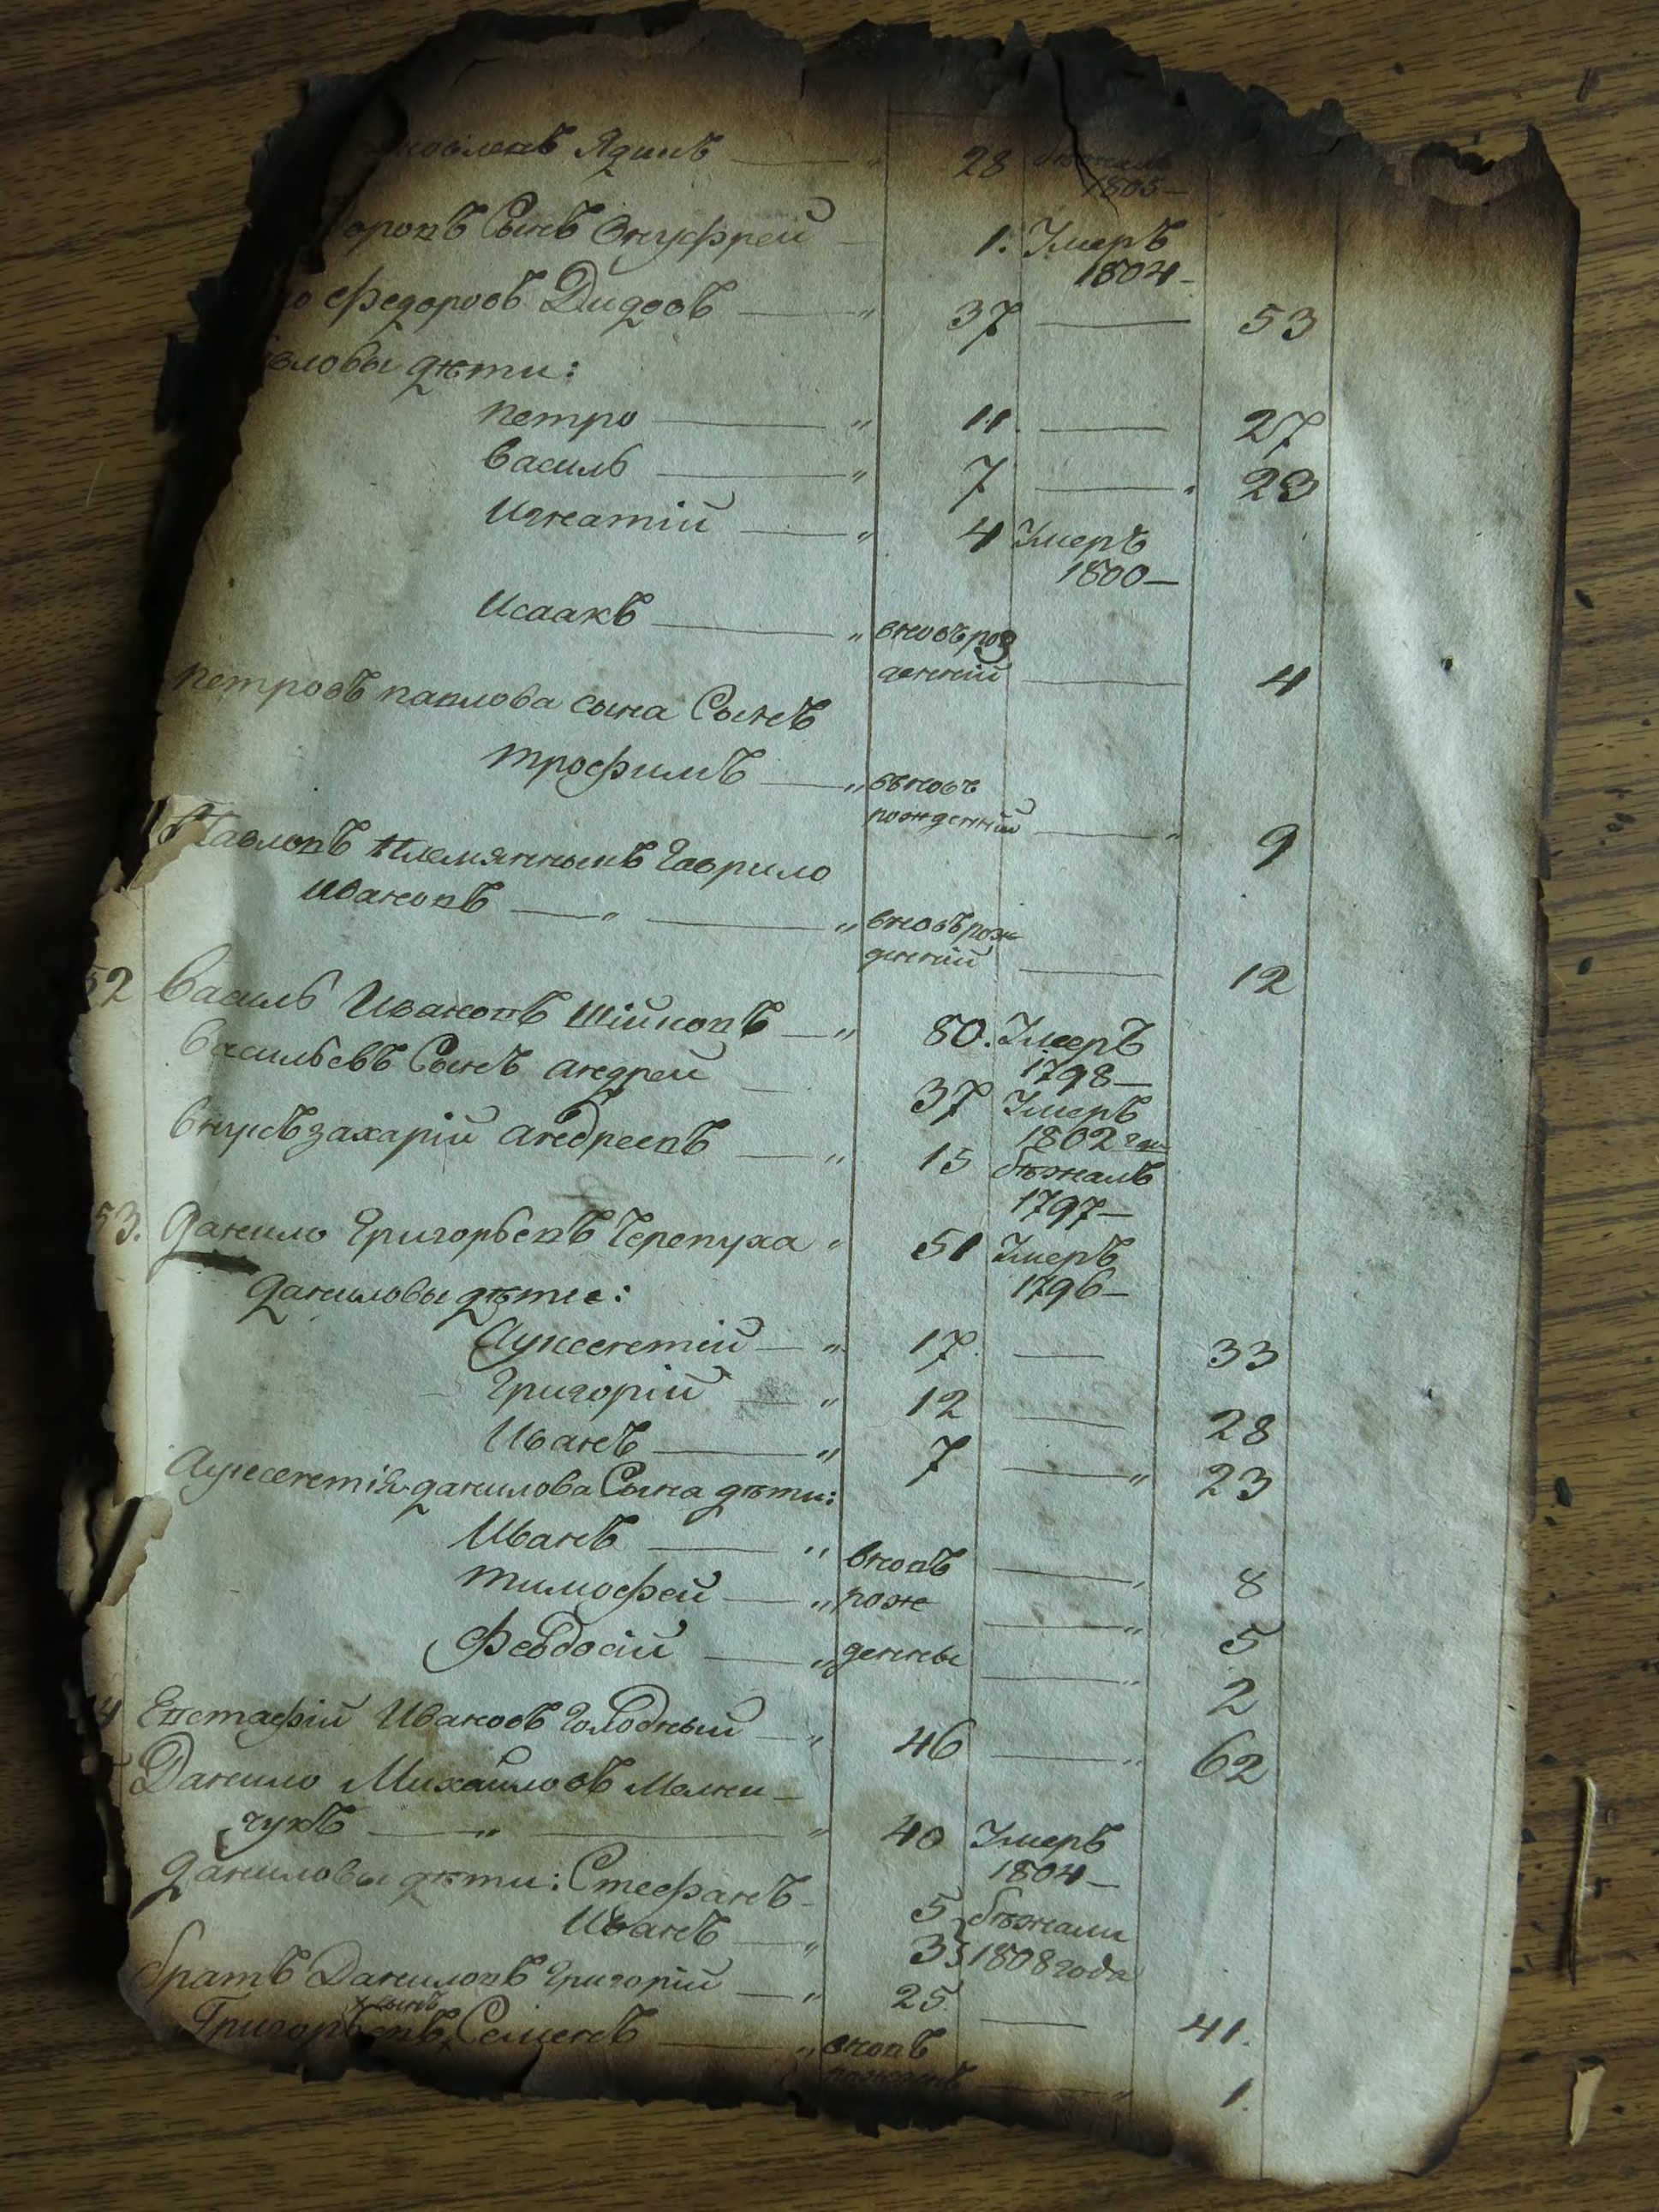 28
1805 —
Сынъ Онуфрей — 1. Умеръ
1804 —
Федоровъ Дидовъ — " 37 — 53
дѣти:
петро — " 11. — 27
василь — " 7 — 23
Игнатій — " 4 Умеръ
1800 —
Исаакъ — " вновь рож
денній — 4
петровъ павлова сына Сынъ
трофимъ — " вновь
рожденній — " 9
Павловъ племянныкъ Гаврило
Ивановъ — " — " вновь рож
денній — 12
52 Василь Ивановъ Шійновъ — " 80. Умеръ
1798 —
васильевъ Сынъ андрей — 37 Умеръ
1802 года
внукъ захарій андреевъ — " 15 бѣжалъ
1797 —
53. Данило Григорьевъ Черепуха " 51 Умеръ
1796 —
даниловы дѣти:
Ауксентій — " 17. — 33
Григорій — " 12 — 28
Иванъ — " 7 — " 23
Ауксентія данилова Сына дѣти:
Иванъ — " вновь — " 8
тимофей — " рож — " 5
Феодосій — " денны — " 2
4 Евстафій Ивановъ Голодный — " 46 — " 62
Данило Михайловъ Мельни-
чукъ — " — " 40 Умеръ
1804 —
даниловы дѣти: Стефанъ - 5 } бѣжали
Иванъ — " 3 } 1808 года
братъ Даниловъ Григорій — " 25. — 41.
сынъ
Григорьевъ Семенъ — " вновь
— " 1.